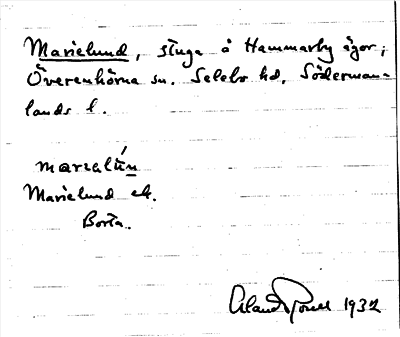 Marielund, stuga å Hammarby ägor,
Överenhörna sn. Selebo hd, Söderman-
lands l.
marielún
Marielund ek.
Borta.
1932